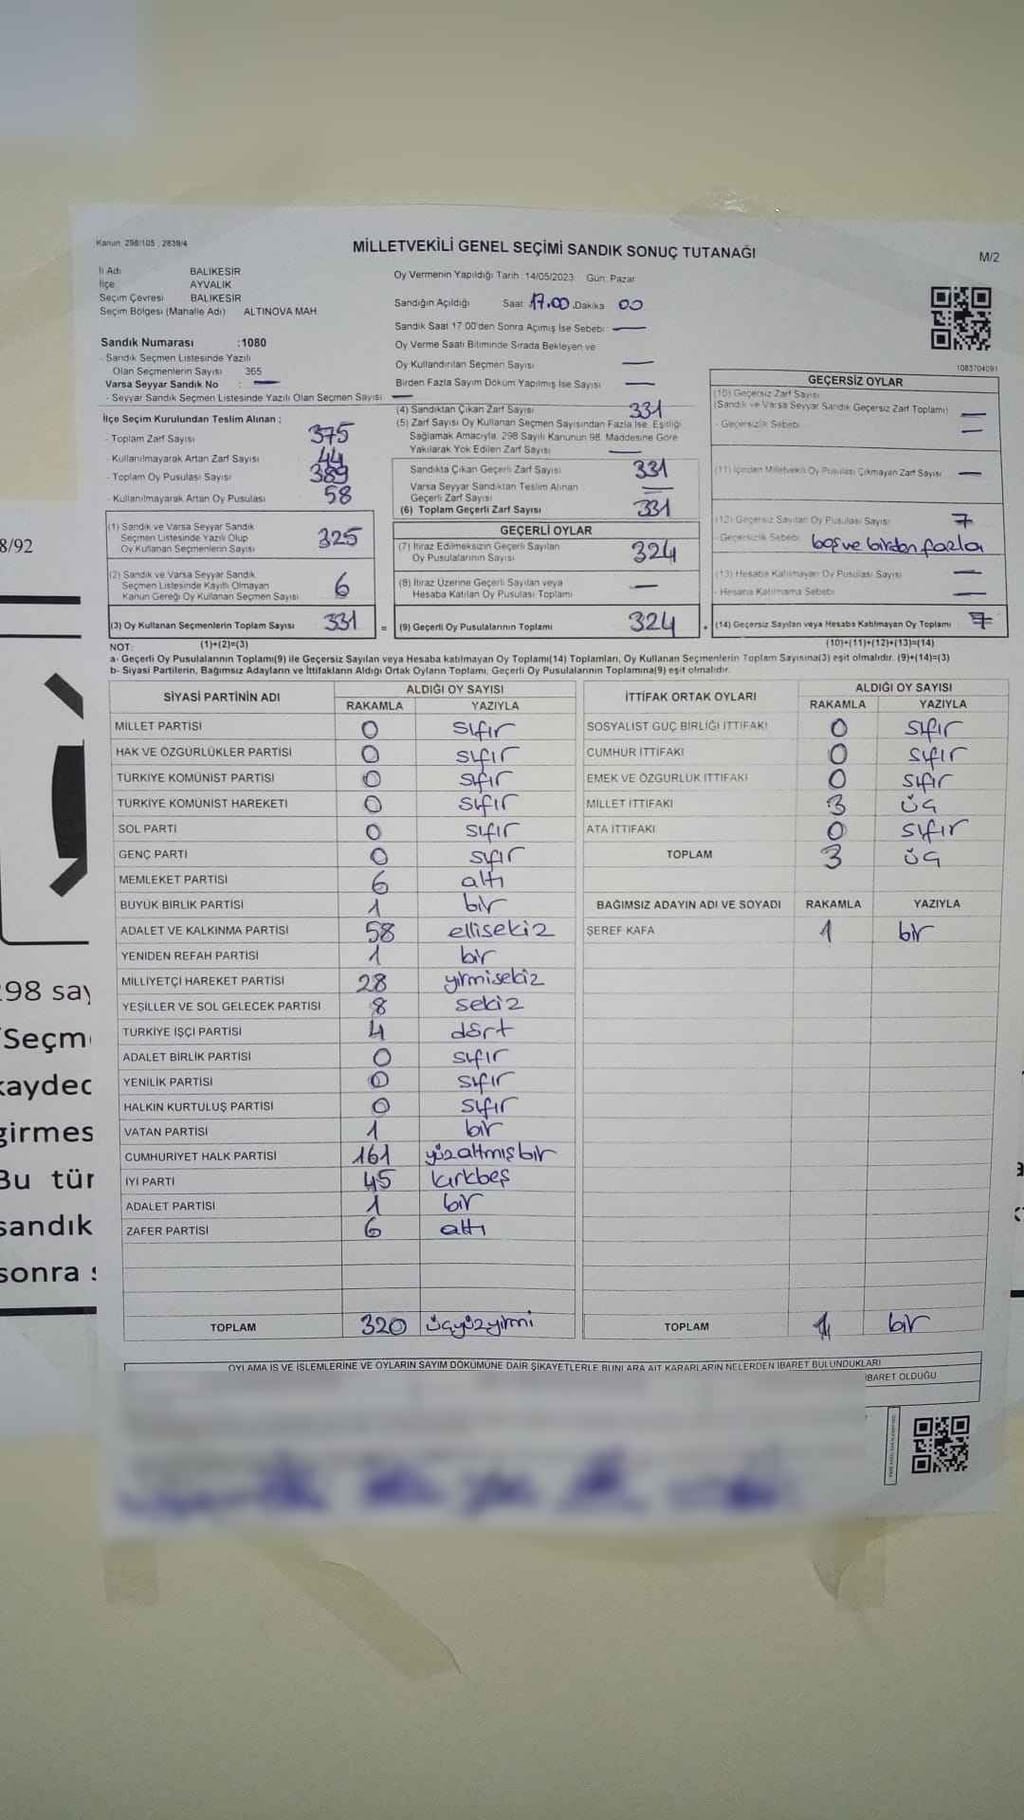 Kanun: 298/105 , 2839/4
MİLLETVEKİLİ GENEL SEÇİMİ SANDIK SONUÇ TUTANAĞI
M/2
İl Adı BALIKESİR
İlçe AYVALIK
Seçim Çevresi BALIKESİR
Seçim Bölgesi (Mahalle Adı) ALTINOVA MAH.
Oy Vermenin Yapıldığı Tarih :14/05/2023 Gün: Pazar
Sandığın Açıldığı Saat: 17.00 .Dakika 00
Sandık Saat 17:00'den Sonra Açımış İse Sebebi: —
Oy Verme Saati Bitiminde Sırada Bekleyen ve
Oy Kullandırılan Seçmen Sayısı —
Birden Fazla Sayım Döküm Yapılmış İse Sayısı —
Sandık Numarası :1080
- Sandık Seçmen Listesinde Yazılı
Olan Seçmenlerin Sayısı 365
Varsa Seyyar Sandık No : —
- Seyyar Sandık Seçmen Listesinde Yazılı Olan Seçmen Sayısı —
İlçe Seçim Kurulundan Teslim Alınan ;
- Toplam Zarf Sayısı 375
- Kullanılmayarak Artan Zarf Sayısı 44
- Toplam Oy Pusulası Sayısı 389
- Kullanılmayarak Artan Oy Pusulası 58
(1) Sandık ve Varsa Seyyar Sandık
Seçmen Listesinde Yazılı Olup
Oy Kullanan Seçmenlerin Sayısı 325
(2) Sandık ve Varsa Seyyar Sandık
Seçmen Listesinde Kayıtlı Olmayan
Kanun Gereği Oy Kullanan Seçmen Sayısı 6
(3) Oy Kullanan Seçmenlerin Toplam Sayısı 331 =
(4) Sandıktan Çıkan Zarf Sayısı 331
(5) Zarf Sayısı Oy Kullanan Seçmen Sayısından Fazla İse, Eşitliği
Sağlamak Amacıyla, 298 Sayılı Kanunun 98. Maddesine Göre
Yakılarak Yok Edilen Zarf Sayısı —
Sandıkta Çıkan Geçerli Zarf Sayısı 331
Varsa Seyyar Sandıktan Teslim Alınan
Geçerli Zarf Sayısı —
(6) Toplam Geçerli Zarf Sayısı 331
GEÇERLİ OYLAR
(7) İtiraz Edilmeksizin Geçerli Sayılan
Oy Pusulalarının Sayısı 324
(8) İtiraz Üzerine Geçerli Sayılan veya
Hesaba Katılan Oy Pusulası Toplamı —
(9) Geçerli Oy Pusulalarının Toplamı 324 +
1083704091
GEÇERSİZ OYLAR
(10) Geçersiz Zarf Sayısı
(Sandık ve Varsa Seyyar Sandık Geçersiz Zarf Toplamı) —
- Geçersizlik Sebebi: —
(11) İçinden Milletvekili Oy Pusulası Çıkmayan Zarf Sayısı —
(12) Geçersiz Sayılan Oy Pusulası Sayısı 7
- Geçersizlik Sebebi: boş ve birden fazla
(13) Hesaba Katılmayan Oy Pusulası Sayısı —
- Hesaba Katılmama Sebebi: —
(14) Geçersiz Sayılan veya Hesaba Katılmayan Oy Toplamı 7
NOT: (1)+(2)=(3) (10)+(11)+(12)+(13)=(14)
a- Geçerli Oy Pusulalarının Toplamı(9) ile Geçersiz Sayılan veya Hesaba katılmayan Oy Toplamı(14) Toplamları, Oy Kullanan Seçmenlerin Toplam Sayısına(3) eşit olmalıdır. (9)+(14)=(3)
b- Siyasi Partilerin, Bağımsız Adayların ve İttifakların Aldığı Ortak Oyların Toplamı, Geçerli Oy Pusulalarının Toplamına(9) eşit olmalıdır.
SİYASİ PARTİNİN ADI ALDIĞI OY SAYISI
RAKAMLA YAZIYLA
MİLLET PARTİSİ 0 sıfır
HAK VE ÖZGÜRLÜKLER PARTİSİ 0 sıfır
TÜRKİYE KOMÜNİST PARTİSİ 0 sıfır
TÜRKİYE KOMÜNİST HAREKETİ 0 sıfır
SOL PARTİ 0 sıfır
GENÇ PARTİ 0 sıfır
MEMLEKET PARTİSİ 6 altı
BÜYÜK BİRLİK PARTİSİ 1 bir
ADALET VE KALKINMA PARTİSİ 58 ellisekiz
YENİDEN REFAH PARTİSİ 1 bir
MİLLİYETÇİ HAREKET PARTİSİ 28 yirmisekiz
YEŞİLLER VE SOL GELECEK PARTİSİ 8 sekiz
TÜRKİYE İŞÇİ PARTİSİ 4 dört
ADALET BİRLİK PARTİSİ 0 sıfır
YENİLİK PARTİSİ 0 sıfır
HALKIN KURTULUŞ PARTİSİ 0 sıfır
VATAN PARTİSİ 1 bir
CUMHURİYET HALK PARTİSİ 161 yüzaltmışbir
İYİ PARTİ 45 kırkbeş
ADALET PARTİSİ 1 bir
ZAFER PARTİSİ 6 altı
TOPLAM 320 üçyüzyirmi
İTTİFAK ORTAK OYLARI ALDIĞI OY SAYISI
RAKAMLA YAZIYLA
SOSYALİST GÜÇ BİRLİĞİ İTTİFAKI 0 sıfır
CUMHUR İTTİFAKI 0 sıfır
EMEK VE ÖZGÜRLÜK İTTİFAKI 0 sıfır
MİLLET İTTİFAKI 3 üç
ATA İTTİFAKI 0 sıfır
TOPLAM 3 üç
BAĞIMSIZ ADAYIN ADI VE SOYADI RAKAMLA YAZIYLA
ŞEREF KAFA 1 bir
TOPLAM 1 bir
OYLAMA İŞ VE İŞLEMLERİNE VE OYLARIN SAYIM DÖKÜMÜNE DAİR ŞİKAYETLERLE BUNLARA AİT KARARLARIN NELERDEN İBARET BULUNDUKLARI
İBARET OLDUĞU
8/92
298 say
Seçm
kaydec
girmes
Bu tür
sandık
sonra s